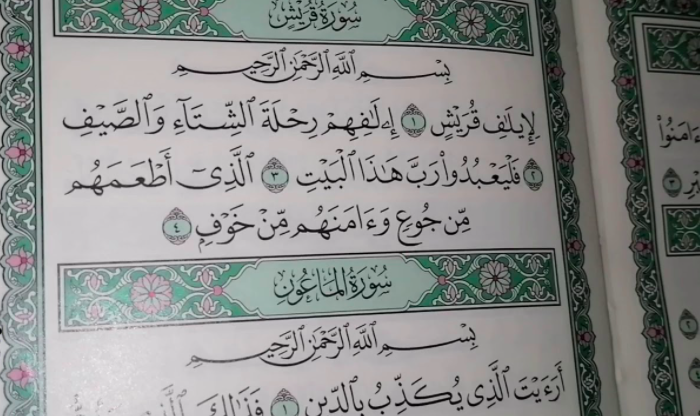 سُورَةُ قُرَيْشٍ
بِسْمِ ٱللَّهِ ٱلرَّحْمَٰنِ ٱلرَّحِيمِ
لِإِيلَٰفِ قُرَيْشٍ ١ إِۦلَٰفِهِمْ رِحْلَةَ ٱلشِّتَآءِ وَٱلصَّيْفِ
٢ فَلْيَعْبُدُوا۟ رَبَّ هَٰذَا ٱلْبَيْتِ ٣ ٱلَّذِىٓ أَطْعَمَهُم
مِّن جُوعٍ وَءَامَنَهُم مِّنْ خَوْفٍۭ ٤
سُورَةُ المَاعُونِ
بِسْمِ ٱللَّهِ ٱلرَّحْمَٰنِ ٱلرَّحِيمِ
أَرَءَيْتَ ٱلَّذِى يُكَذِّبُ بِٱلدِّينِ ١ فَذَٰلِكَ
ءَامَنُوا۟